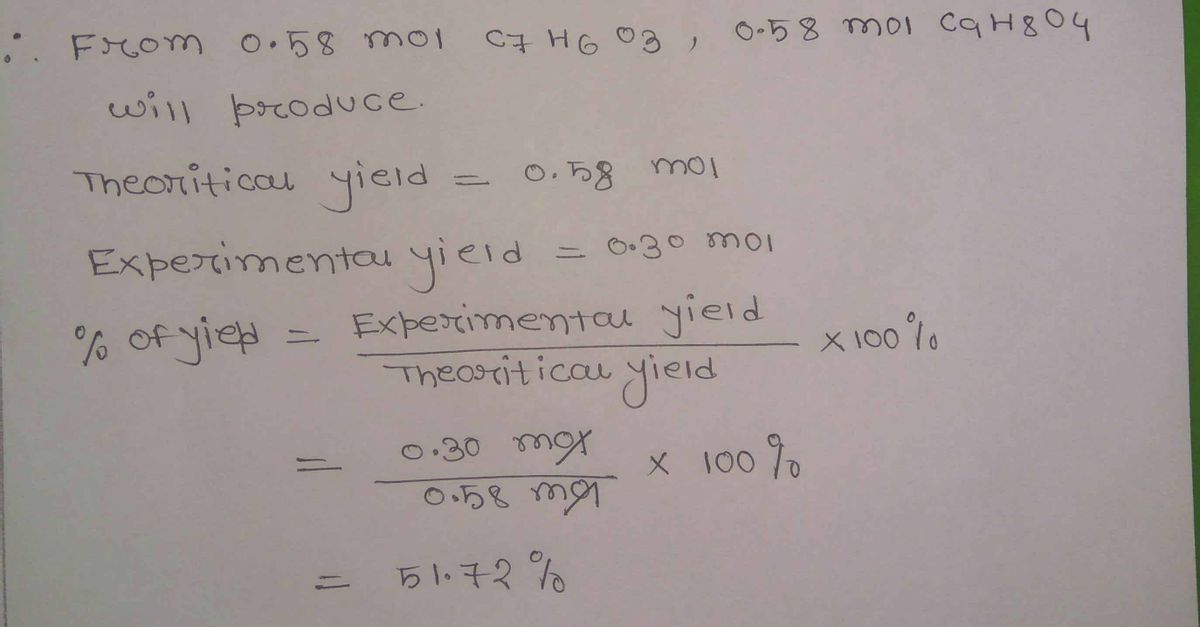 ∴ From 0.58 mol C7H6O3, 0.58 mol C9H8O4
will produce.
Theoritical yield = 0.58 mol
Experimental yield = 0.30 mol
% of yield = Experimental yield / Theoritical yield × 100%
= 0.30 mol / 0.58 mol × 100%
= 51.72%